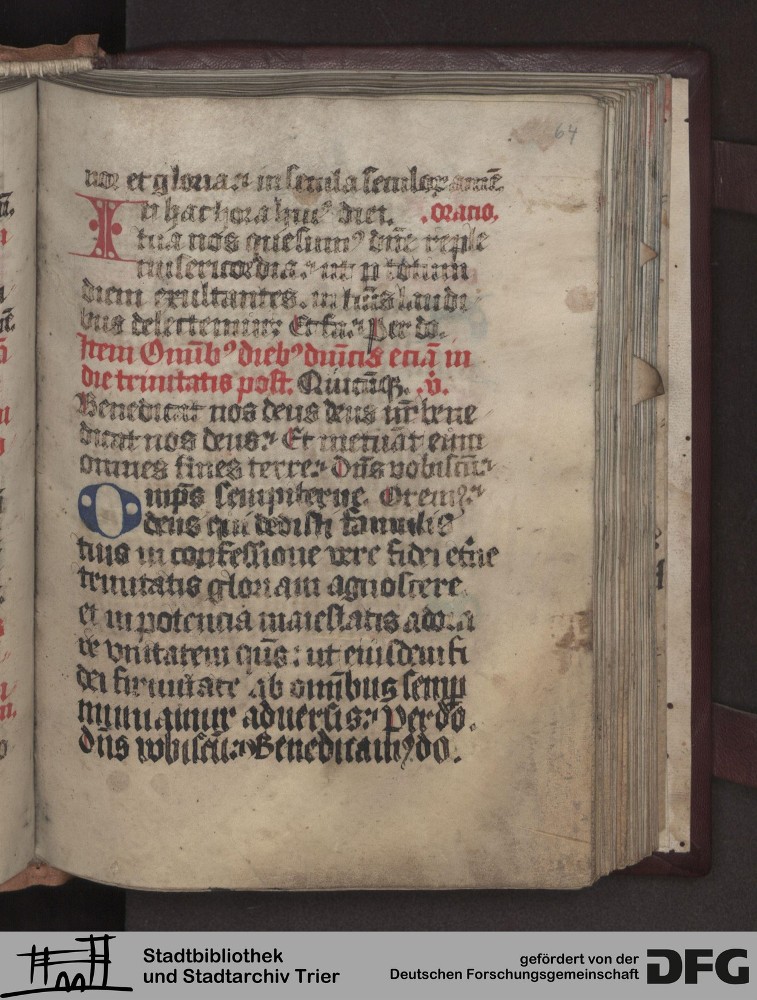 64
nor et gloria. in secula seculoꝝ amē
In hac hora huiꝰ diei. .oratio.
tua nos quesumꝰ dn̄e reple
misericordia. ut p totum
diem exultantes. in tuis laudi
bus delectemur. Et fa. Per do.
Item Om̄ibꝰ diebꝰ dn̄icis eciā in
die trinitatis post. Quicūqꝫ. .v̇.
Benedicat nos deus deus nr̄ bene
dicat nos deus. Et metuāt eum
omnes fines terre. Dn̄s vobiscū.
Omp̄s sempiterne Oremꝰ.
deus qui dedisti famulis
tuis in confessione vere fidei et̄ne
trinitatis gloriam agnoscere
et in potencia maiestatis adora
re vnitatem qs̄: ut eiusdem fi
dei firmitate ab om̄ibus semp
muniamur aduersis. Per do.
Dn̄s vobiscū. Benedicamꝰ do.
Stadtbibliothek
und Stadtarchiv Trier
gefördert von der
Deutschen Forschungsgemeinschaft
DFG